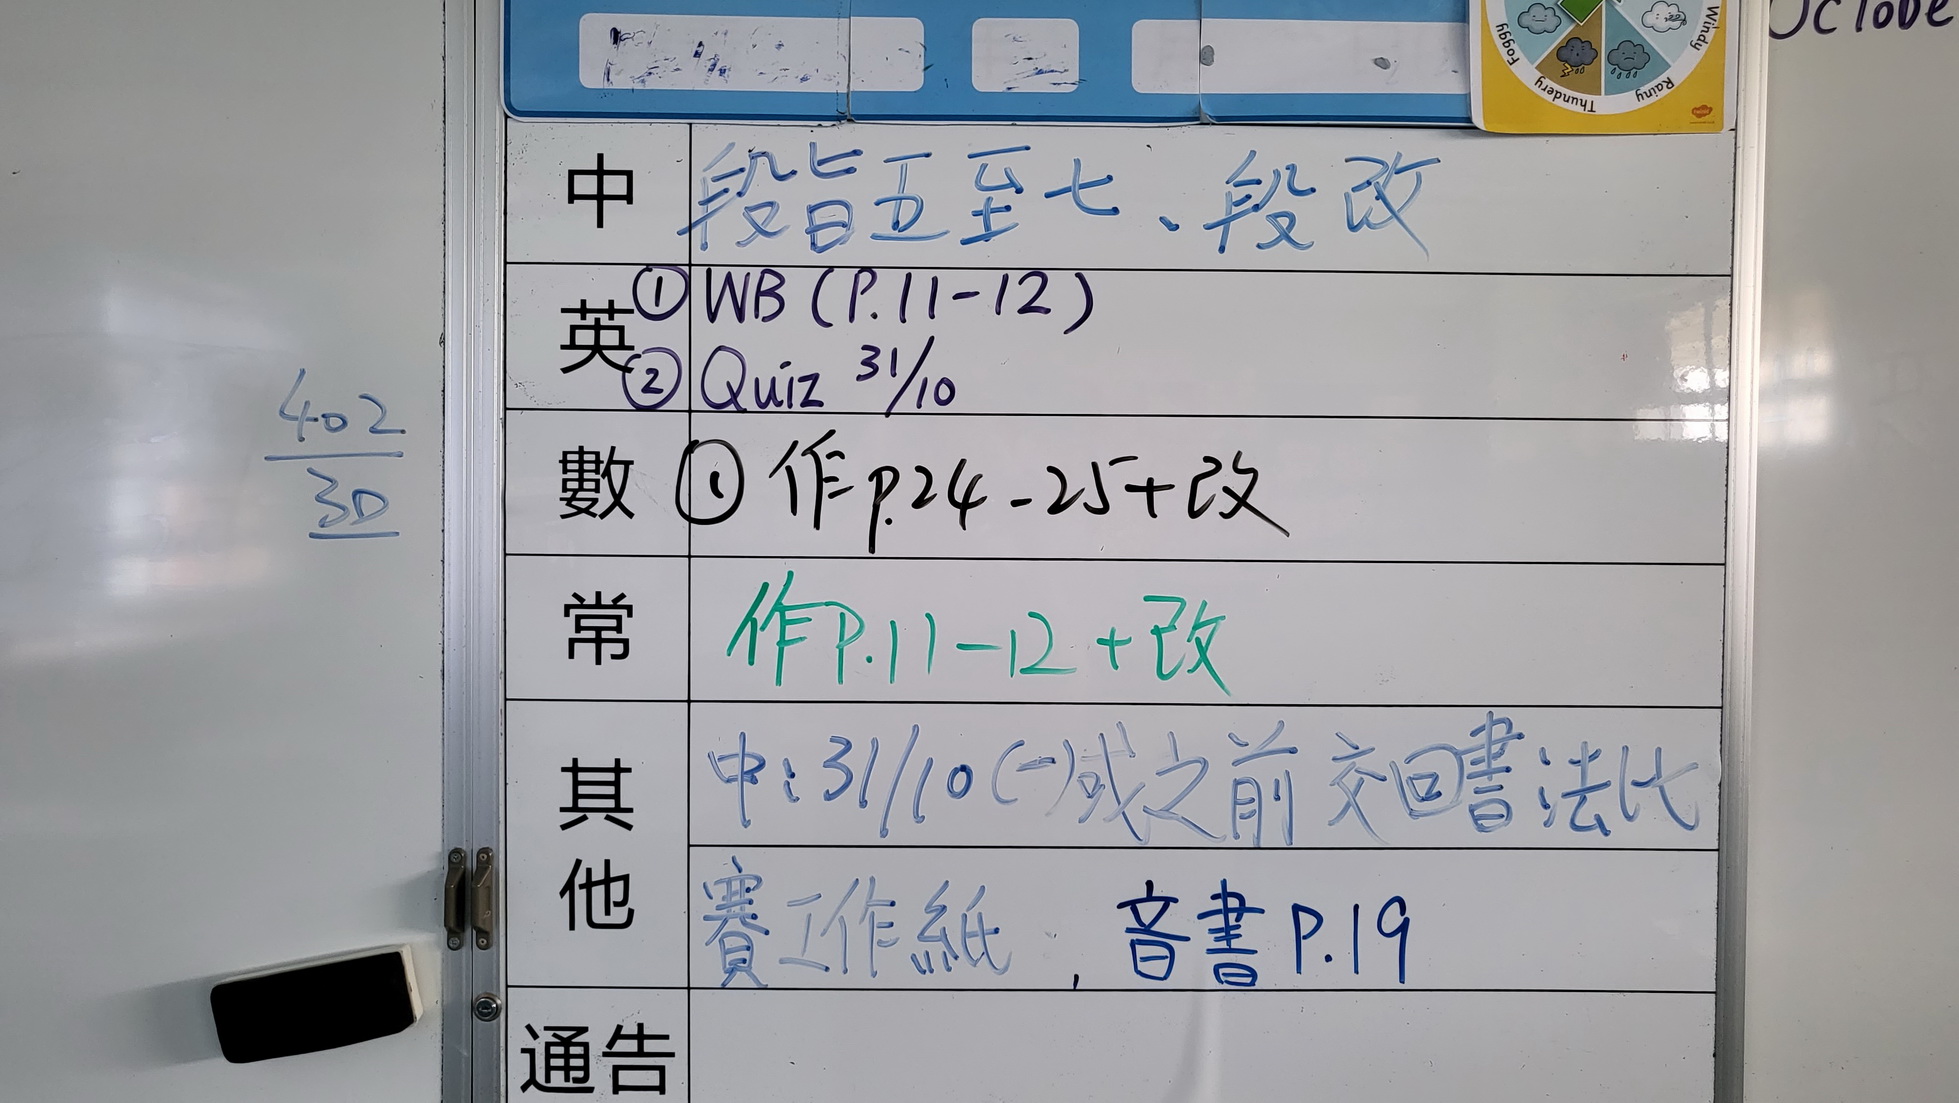 Octobe
Foggy
Thundery
Rainy
Windy
中 段旨五至七、段改
英 ① WB (P.11-12)
② Quiz 31/10
數 ① 作 P.24-25+改
常 作P.11-12+改
其他 中:31/10(一)或之前交回書法比
賽工作紙,音書P.19
通告
402
30